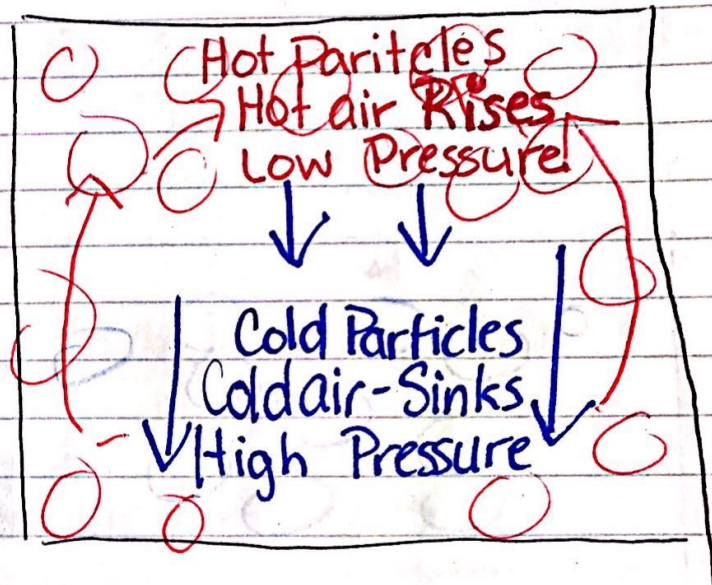 Hot Paritcles
Hot air Rises
Low Pressure!
Cold Particles
Cold air-Sinks
High Pressure